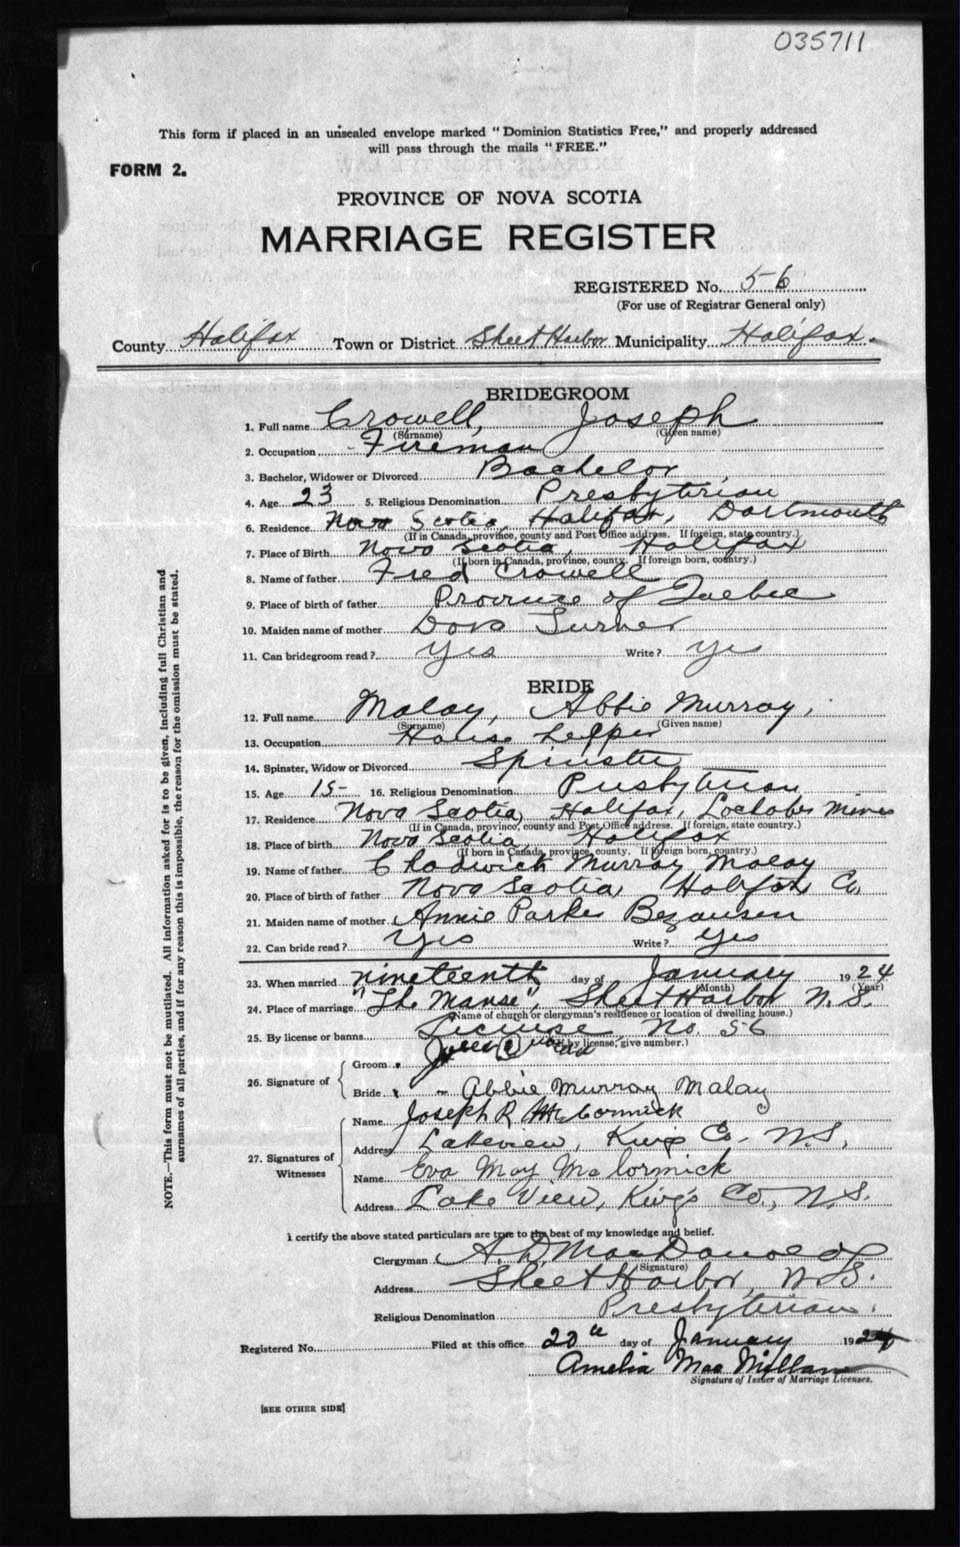 035711
This form if placed in an unsealed envelope marked "Dominion Statistics Free," and properly addressed
will pass through the mails "FREE."
FORM 2.
PROVINCE OF NOVA SCOTIA
MARRIAGE REGISTER
REGISTERED No. 56
(For use of Registrar General only)
County Halifax Town or District Sheet Harbor Municipality Halifax
BRIDEGROOM
1. Full name Crowell, Joseph
(Surname) (Given name)
2. Occupation Fireman
3. Bachelor, Widower or Divorced Bachelor
4. Age 23 5. Religious Denomination Presbyterian
6. Residence Nova Scotia, Halifax, Dartmouth
(If in Canada, province, county and Post Office address. If foreign, state country.)
7. Place of Birth Nova Scotia, Halifax
(If born in Canada, province, county. If foreign born, country.)
8. Name of father Fred Crowell
9. Place of birth of father Province of Quebec
10. Maiden name of mother Dora Turner
11. Can bridegroom read? Yes Write? yes
BRIDE
12. Full name Malay, Abbie Murray,
(Surname) (Given name)
13. Occupation House helper
14. Spinster, Widow or Divorced Spinster
15. Age 15 16. Religious Denomination Presbyterian
17. Residence Nova Scotia, Halifax, Lochaber Mines
(If in Canada, province, county and Post Office address. If foreign, state country.)
18. Place of birth Nova Scotia, Halifax
(If born in Canada, province, county. If foreign born, country.)
19. Name of father Chadwick Murray Malay
20. Place of birth of father Nova Scotia, Halifax Co.
21. Maiden name of mother Annie Parker Bezansen
22. Can bride read? Yes Write? Yes
23. When married nineteenth day of January 1924
(Month) (Year)
24. Place of marriage "The Manse", Sheet Harbor N.S.
(Name of church or clergyman's residence or location of dwelling house.)
25. By license or banns License No. 56
(If by license, give number.)
26. Signature of
Groom
Bride Abbie Murray Malay
27. Signatures of Witnesses
Name Joseph R McCormick
Address Lakeview, King's Co. N.S.
Name Eva May McCormick
Address Lake View, King's Co., N.S.
I certify the above stated particulars are true to the best of my knowledge and belief.
Clergyman A. D. MacDonald
(Signature)
Address Sheet Harbor, N.S.
Religious Denomination Presbyterian.
Registered No. Filed at this office 20th day of January 1924
Amelia MacMillan
Signature of Issuer of Marriage Licenses.
[SEE OTHER SIDE]
NOTE.—This form must not be mutilated. All information asked for is to be given, including full Christian and
surnames of all parties, and if for any reason this is impossible, the reason for the omission must be stated.